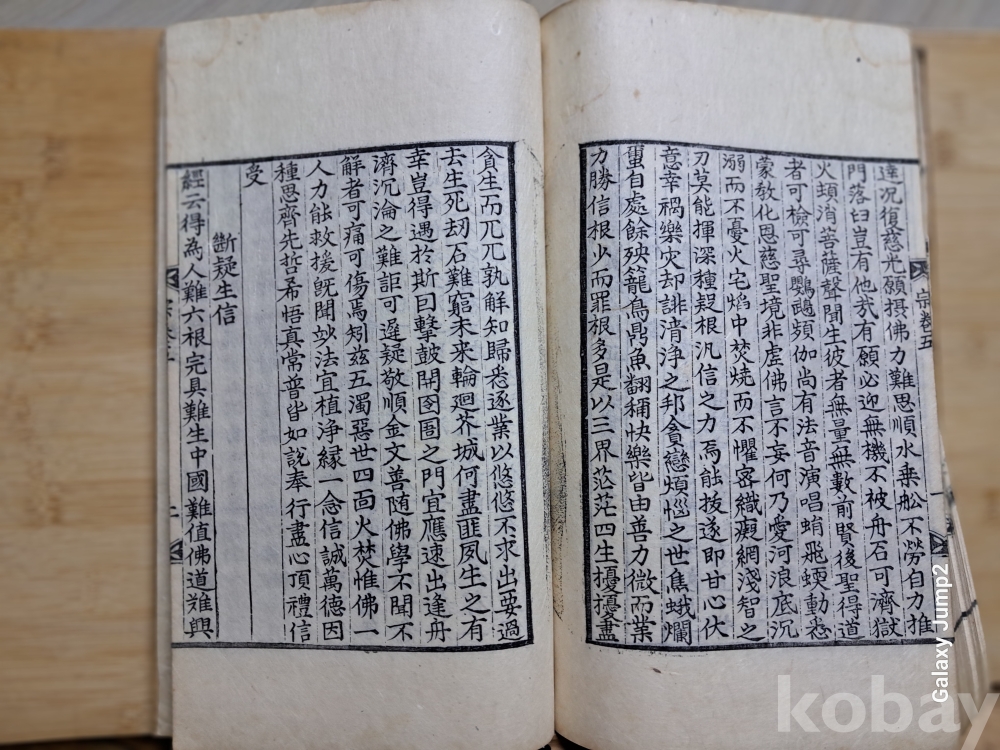 宗卷五
達況復慈光願攝佛力難思順水乗舩不勞自力推
門落臼豈有他㢤有願必迎無機不被舟石可濟獄
火頓消菩薩聲聞生彼者無量無數前賢後聖得道
者可檢可尋鸚鵡頻伽尚有法音演唱蛸飛蝡動悉
蒙教化恩慈聖境非虚佛言不妄何乃愛河浪底沉
溺而不憂火宅焰中焚燒而不懼密織癡網淺智之
刃莫能揮深種疑根汎信之力焉能拔遂即甘心伏
意幸禍樂灾却誹清淨之邦貪戀煩惱之世焦蛾爛
蠒自處餘殃籠鳥鼎魚翻稱快樂皆由善力微而業
力勝信根少而罪根多是以三界茫茫四生擾擾盡
貪生而兀兀孰解知歸悉逐業以悠悠不求出要過
去生死劫石難窮未来輪廻芥城何盡匪夙生之有
幸豈得遇於斯曰擊鼓開囹圄之門宜應速出逢舟
濟沉淪之難詎可遲疑敬順金文善随佛學不聞不
解者可痛可傷焉矧兹五濁惡世四面火焚惟佛一
人力能救援旣聞妙法宜植淨縁一念信誠萬德因
種思齊先哲希悟真常普皆如說奉行盡心頂禮信
受
斷疑生信
經云得為人難六根完具難生中國難值佛道難興
Galaxy Jump2
kobay